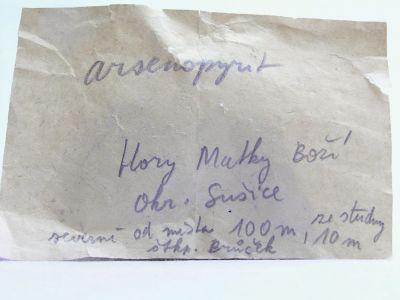 arsenopyrit
Hory Matky Boží
okr. Sušice
severně od města 100 m, ze studny
stkp. Brůček 10 m